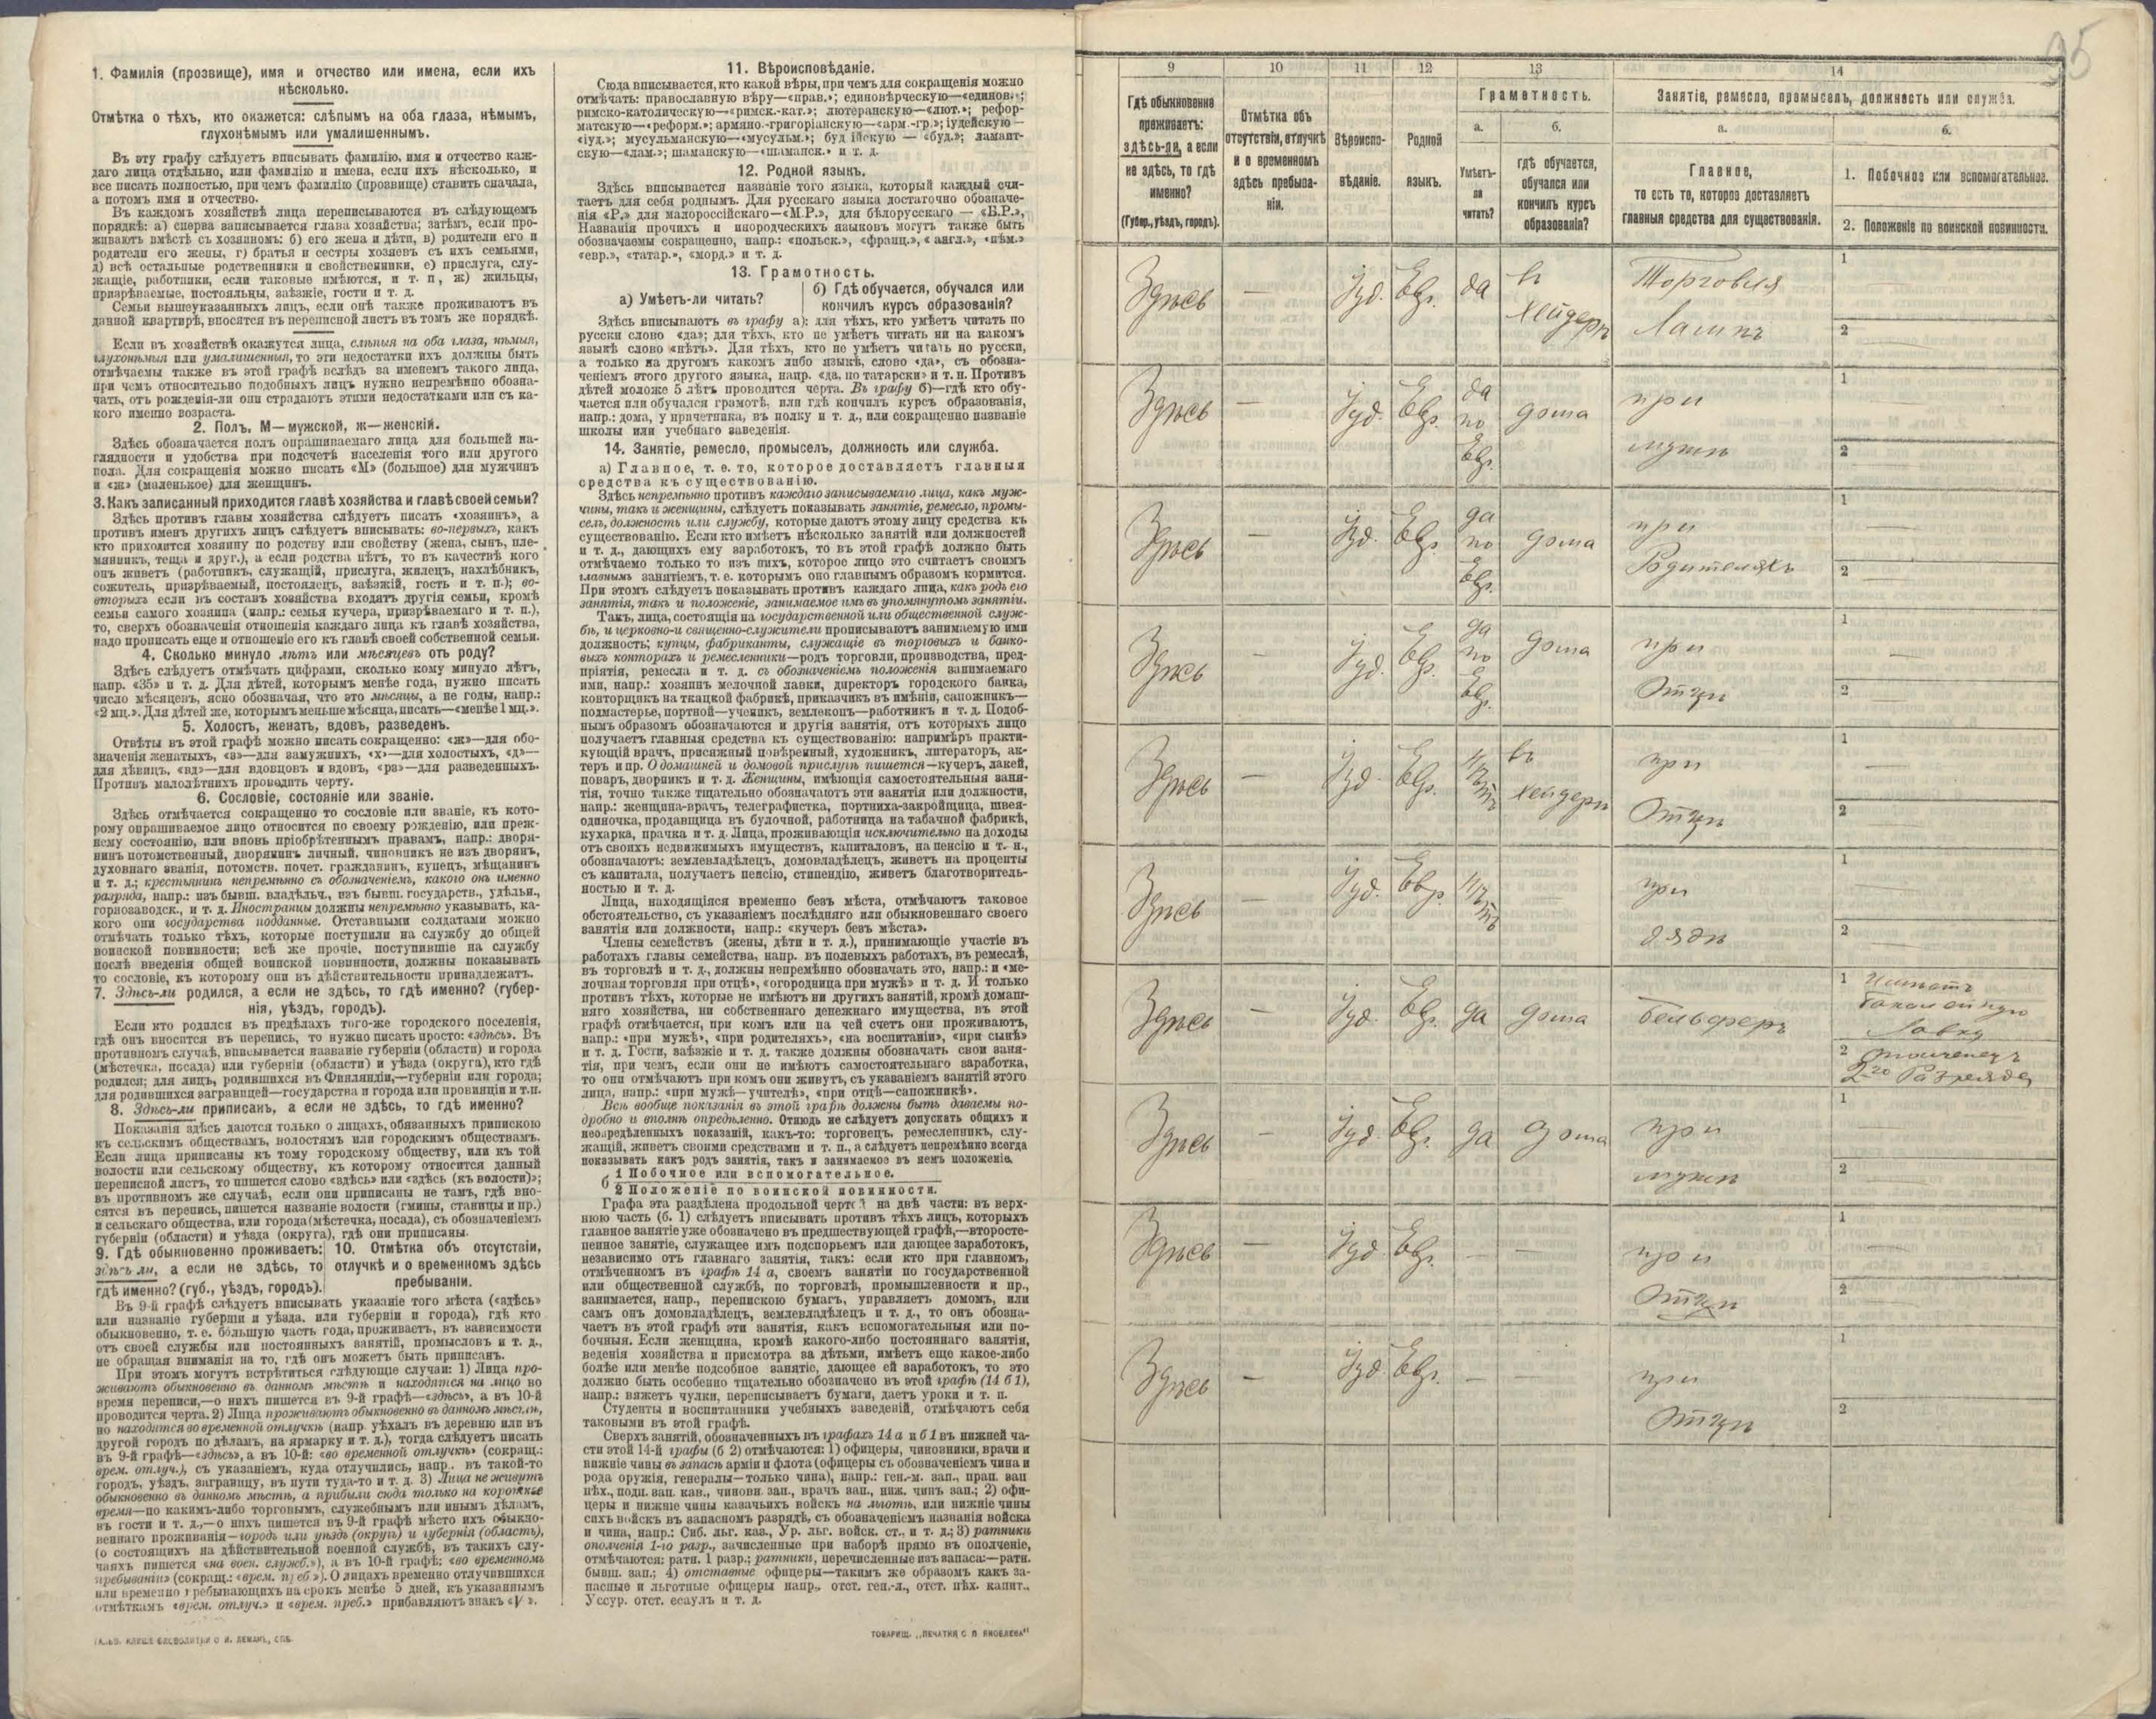 1. Фамилія (прозвище), имя и отчество или имена, если ихъ
нѣсколько.
Отмѣтка о тѣхъ, кто окажется: слѣпымъ на оба глаза, нѣмымъ,
глухонѣмымъ или умалишеннымъ.
Въ эту графу слѣдуетъ вписывать фамилію, имя и отчество каж-
даго лица отдѣльно, или фамилію и имена, если ихъ нѣсколько, и
все писать полностью, при чемъ фамилію (прозвище) ставить сначала,
а потомъ имя и отчество.
Въ каждомъ хозяйствѣ лица переписываются въ слѣдующемъ
порядкѣ: а) сперва записывается глава хозяйства; затѣмъ, если про-
живаютъ вмѣстѣ съ хозяиномъ: б) его жена и дѣти, в) родители его и
родители его жены, г) братья и сестры хозяевъ съ ихъ семьями,
д) всѣ остальные родственники и свойственники, е) прислуга, слу-
жащіе, работники, если таковые имѣются, и т. п, ж) жильцы,
призрѣваемые, постояльцы, заѣзжіе, гости и т. д.
Семьи вышеуказанныхъ лицъ, если онѣ также проживаютъ въ
данной квартирѣ, вносятся въ переписной листъ въ томъ же порядкѣ.
Если въ хозяйствѣ окажутся лица, слѣпыя на оба глаза, нѣмыя,
глухонѣмыя или умалишенныя, то эти недостатки ихъ должны быть
отмѣчаемы также въ этой графѣ вслѣдъ за именемъ такого лица,
при чемъ относительно подобныхъ лицъ нужно непремѣнно обозна-
чать, отъ рожденія-ли они страдаютъ этими недостатками или съ ка-
кого именно возраста.
2. Полъ. М—мужской, ж—женскій.
Здѣсь обозначается полъ опрашиваемаго лица для большей на-
глядности и удобства при подсчетѣ населенія того или другого
пола. Для сокращенія можно писать «М» (большое) для мужчинъ
и «ж» (маленькое) для женщинъ.
3. Какъ записанный приходится главѣ хозяйства и главѣ своей семьи?
Здѣсь противъ главы хозяйства слѣдуетъ писать «хозяинъ», а
противъ именъ другихъ лицъ слѣдуетъ вписывать: во-первыхъ, какъ
кто приходится хозяину по родству или свойству (жена, сынъ, пле-
мянникъ, теща и друг.), а если родства нѣтъ, то въ качествѣ кого
онъ живетъ (работникъ, служащій, прислуга, жилецъ, нахлѣбникъ,
сожитель, призрѣваемый, постоялецъ, заѣзжій, гость и т. п.); во-
вторыхъ если въ составъ хозяйства входятъ другія семьи, кромѣ
семьи самого хозяина (напр.: семья кучера, призрѣваемаго и т. п.),
то, сверхъ обозначенія отношенія каждаго лица къ главѣ хозяйства,
надо прописать еще и отношеніе его къ главѣ своей собственной семьи.
4. Сколько минуло лѣтъ или мѣсяцевъ отъ роду?
Здѣсь слѣдуетъ отмѣчать цифрами, сколько кому минуло лѣтъ,
напр. «35» и т. д. Для дѣтей, которымъ менѣе года, нужно писать
число мѣсяцевъ, ясно обозначая, что это мѣсяцы, а не годы, напр.:
«2 мц.». Для дѣтей же, которымъ меньше мѣсяца, писать—«менѣе 1 мц.».
5. Холостъ, женатъ, вдовъ, разведенъ.
Отвѣты въ этой графѣ можно писать сокращенно: «ж»—для обо-
значенія женатыхъ, «з»—для замужнихъ, «х»—для холостыхъ, «д»—
для дѣвицъ, «вд»—для вдовцовъ и вдовъ, «рз»—для разведенныхъ.
Противъ малолѣтнихъ проводить черту.
6. Сословіе, состояніе или званіе.
Здѣсь отмѣчается сокращенно то сословіе или званіе, къ кото-
рому опрашиваемое лицо относится по своему рожденію, или преж-
нему состоянію, или вновь пріобрѣтеннымъ правамъ, напр.: дворя-
нинъ потомственный, дворянинъ личный, чиновникъ не изъ дворянъ,
духовнаго званія, потомств. почет. гражданинъ, купецъ, мѣщанинъ
и т. д.; крестьянинъ непремѣнно съ обозначеніемъ, какого онъ именно
разряда, напр.: изъ бывш. владѣльч., изъ бывш. государств., удѣльн.,
горнозаводск., и т. д. Иностранцы должны непремѣнно указывать, ка-
кого они государства подданные. Отставными солдатами можно
отмѣчать только тѣхъ, которые поступили на службу до общей
воинской повинности; всѣ же прочіе, поступившіе на службу
послѣ введенія общей воинской повинности, должны показывать
то сословіе, къ которому они въ дѣйствительности принадлежатъ.
7. Здѣсь-ли родился, а если не здѣсь, то гдѣ именно? (губер-
нія, уѣздъ, городъ).
Если кто родился въ предѣлахъ того-же городского поселенія,
гдѣ онъ вносится въ перепись, то нужно писать просто: «здѣсь». Въ
противномъ случаѣ, вписывается названіе губерніи (области) и города
(мѣстечка, посада) или губерніи (области) и уѣзда (округа), кто гдѣ
родился; для лицъ, родившихся въ Финляндіи,—губерніи или города;
для родившихся заграницей—государства и города или провинціи и т.п.
8. Здѣсь-ли приписанъ, а если не здѣсь, то гдѣ именно?
Показанія здѣсь даются только о лицахъ, обязанныхъ припискою
къ сельскимъ обществамъ, волостямъ или городскимъ обществамъ.
Если лица приписаны къ тому городскому обществу, или къ той
волости или сельскому обществу, къ которому относится данный
переписной листъ, то пишется слово «здѣсь» или «здѣсь (къ волости)»;
въ противномъ же случаѣ, если они приписаны не тамъ, гдѣ вно-
сятся въ перепись, пишется названіе волости (гмины, станицы и пр.)
и сельскаго общества, или города (мѣстечка, посада), съ обозначеніемъ
губерніи (области) и уѣзда (округа), гдѣ они приписаны.
9. Гдѣ обыкновенно проживаетъ:
здѣсь ли, а если не здѣсь, то
гдѣ именно? (губ., уѣздъ, городъ).
10. Отмѣтка объ отсутствіи,
отлучкѣ и о временномъ здѣсь
пребываніи.
Въ 9-й графѣ слѣдуетъ вписывать указаніе того мѣста («здѣсь»
или названіе губерніи и уѣзда, или губерніи и города), гдѣ кто
обыкновенно, т. е. бо́льшую часть года, проживаетъ, въ зависимости
отъ своей службы или постоянныхъ занятій, промысловъ и т. д.,
не обращая вниманія на то, гдѣ онъ можетъ быть приписанъ.
При этомъ могутъ встрѣтиться слѣдующіе случаи: 1) Лица про-
живаютъ обыкновенно въ данномъ мѣстѣ и находятся на лицо во
время переписи,—о нихъ пишется въ 9-й графѣ—«здѣсь», а въ 10-й
проводится черта. 2) Лица проживаютъ обыкновенно въ данномъ мѣстѣ,
но находятся во временной отлучкѣ (напр. уѣхалъ въ деревню или въ
другой городъ по дѣламъ, на ярмарку и т. д.), тогда слѣдуетъ писать
въ 9-й графѣ—«здѣсь», а въ 10-й: «во временной отлучкѣ» (сокращ.:
врем. отлуч.), съ указаніемъ, куда отлучились, напр.. въ такой-то
городъ, уѣздъ, заграницу, въ пути туда-то и т. д. 3) Лица не живутъ
обыкновенно въ данномъ мѣстѣ, а прибыли сюда только на короткое
время—по какимъ-либо торговымъ, служебнымъ или инымъ дѣламъ,
въ гости и т. д.,—о нихъ пишется въ 9-й графѣ мѣсто ихъ обыкно-
веннаго проживанія—городъ или уѣздъ (округъ) и губернія (область),
(о состоящихъ на дѣйствительной военной службѣ, въ такихъ слу-
чаяхъ пишется «на воен. служб.»), а въ 10-й графѣ: «во временномъ
пребываніи» (сокращ.: «врем. преб.»). О лицахъ временно отлучившихся
или временно пребывающихъ на срокъ менѣе 5 дней, къ указаннымъ
отмѣткамъ «врем. отлуч.» и «врем. преб.» прибавляютъ знакъ «V».
11. Вѣроисповѣданіе.
Сюда вписывается, кто какой вѣры, при чемъ для сокращенія можно
отмѣчать: православную вѣру—«прав.»; единовѣрческую—«единов.»;
римско-католическую—«римск.-кат.»; лютеранскую—«лют.»; рефор-
матскую—«реформ.»; армяно.-григоріанскую—«арм.-гр.»; іудейскую—
«іуд.»; мусульманскую—«мусульм.»; буддійскую — «буд.»; ламаит-
скую—«лам.»; шаманскую—«шаманск.» и т. д.
12. Родной языкъ.
Здѣсь вписывается названіе того языка, который каждый счи-
таетъ для себя роднымъ. Для русскаго языка достаточно обозначе-
нія «Р.» для малороссійскаго—«М.Р.», для бѣлорусскаго — «Б.Р.»,
Названія прочихъ и инородческихъ языковъ могутъ также быть
обозначаемы сокращенно, напр.: «польск.», «франц.», «англ.», «нѣм.»
«евр.», «татар.», «морд.» и т. д.
13. Грамотность.
а) Умѣетъ-ли читать?
б) Гдѣ обучается, обучался или
кончилъ курсъ образованія?
Здѣсь вписываютъ въ графу а): для тѣхъ, кто умѣетъ читать по
русски слово «да»; для тѣхъ, кто не умѣетъ читать ни на какомъ
языкѣ слово «нѣтъ». Для тѣхъ, кто не умѣетъ читать по русски,
а только на другомъ какомъ либо языкѣ, слово «да», съ обозна-
ченіемъ этого другого языка, напр. «да, по татарски» и т. п. Противъ
дѣтей моложе 5 лѣтъ проводится черта. Въ графу б)—гдѣ кто обу-
чается или обучался грамотѣ, или гдѣ кончилъ курсъ образованія,
напр.: дома, у причетника, въ полку и т. д., или сокращенно названіе
школы или учебнаго заведенія.
14. Занятіе, ремесло, промыселъ, должность или служба.
а) Главное, т. е. то, которое доставляетъ главныя
средства къ существованію.
Здѣсь непремѣнно противъ каждаго записываемаго лица, какъ муж-
чины, такъ и женщины, слѣдуетъ показывать занятіе, ремесло, промы-
селъ, должность или службу, которые даютъ этому лицу средства къ
существованію. Если кто имѣетъ нѣсколько занятій или должностей
и т. д., дающихъ ему заработокъ, то въ этой графѣ должно быть
отмѣчаемо только то изъ нихъ, которое лицо это считаетъ своимъ
главнымъ занятіемъ, т. е. которымъ оно главнымъ образомъ кормится.
При этомъ слѣдуетъ показывать противъ каждаго лица, какъ родъ его
занятія, такъ и положеніе, занимаемое имъ въ упомянутомъ занятіи.
Такъ, лица, состоящія на государственной или общественной служ-
бѣ, и церковно-и священно-служители прописываютъ занимаемую ими
должность; купцы, фабриканты, служащіе въ торговыхъ и банко-
выхъ конторахъ и ремесленники—родъ торговли, производства, пред-
пріятія, ремесла и т. д. съ обозначеніемъ положенія занимаемаго
ими, напр.: хозяинъ мелочной лавки, директоръ городского банка,
конторщикъ на ткацкой фабрикѣ, приказчикъ въ имѣніи, сапожникъ—
подмастерье, портной—ученикъ, землекопъ—работникъ и т. д. Подоб-
нымъ образомъ обозначаются и другія занятія, отъ которыхъ лицо
получаетъ главныя средства къ существованію: напримѣръ практи-
кующій врачъ, присяжный повѣренный, художникъ, литераторъ, ак-
теръ и пр. О домашней и домовой прислугѣ пишется—кучеръ, лакей,
поваръ, дворникъ и т. д. Женщины, имѣющія самостоятельныя заня-
тія, точно также тщательно обозначаютъ эти занятія или должности,
напр.: женщина-врачъ, телеграфистка, портниха-закройщица, швея-
одиночка, продавщица въ булочной, работница на табачной фабрикѣ,
кухарка, прачка и т. д. Лица, проживающія исключительно на доходы
отъ своихъ недвижимыхъ имуществъ, капиталовъ, на пенсію и т. п.,
обозначаютъ: землевладѣлецъ, домовладѣлецъ, живетъ на проценты
съ капитала, получаетъ пенсію, стипендію, живетъ благотворитель-
ностью и т. д.
Лица, находящіяся временно безъ мѣста, отмѣчаютъ таковое
обстоятельство, съ указаніемъ послѣдняго или обыкновеннаго своего
занятія или должности, напр.: «кучеръ безъ мѣста».
Члены семействъ (жены, дѣти и т. д.), принимающіе участіе въ
работахъ главы семейства, напр. въ полевыхъ работахъ, въ ремеслѣ,
въ торговлѣ и т. д., должны непремѣнно обозначать это, напр.: и «ме-
лочная торговля при отцѣ», «огородница при мужѣ» и т. д. И только
противъ тѣхъ, которые не имѣютъ ни другихъ занятій, кромѣ домаш-
няго хозяйства, ни собственнаго денежнаго имущества, въ этой
графѣ отмѣчается, при комъ или на чей счетъ они проживаютъ,
напр.: «при мужѣ», «при родителяхъ», «на воспитаніи», «при сынѣ»
и т. д. Гости, заѣзжіе и т. д. также должны обозначать свои заня-
тія, при чемъ, если они не имѣютъ самостоятельнаго заработка,
то они отмѣчаютъ при комъ они живутъ, съ указаніемъ занятій этого
лица, напр.: «при мужѣ—учителѣ», «при отцѣ—сапожникѣ».
Всѣ вообще показанія въ этой графѣ должны быть даваемы по-
дробно и вполнѣ опредѣленно. Отнюдь не слѣдуетъ допускать общихъ и
неопредѣленныхъ показаній, какъ-то: торговецъ, ремесленникъ, слу-
жащій, живетъ своими средствами и т. п., а слѣдуетъ непремѣнно всегда
показывать какъ родъ занятія, такъ и занимаемое въ немъ положеніе.
б 1 Побочное или вспомогательное.
2 Положеніе по воинской повинности.
Графа эта раздѣлена продольной чертой на двѣ части: въ верх-
нюю часть (б. 1) слѣдуетъ вписывать противъ тѣхъ лицъ, которыхъ
главное занятіе уже обозначено въ предшествующей графѣ,—второсте-
пенное занятіе, служащее имъ подспорьемъ или дающее заработокъ,
независимо отъ главнаго занятія, такъ: если кто при главномъ,
отмѣченномъ въ графѣ 14 а, своемъ занятіи по государственной
или общественной службѣ, по торговлѣ, промышленности и пр.,
занимается, напр., перепискою бумагъ, управляетъ домомъ, или
самъ онъ домовладѣлецъ, землевладѣлецъ и т. д., то онъ обозна-
чаетъ въ этой графѣ эти занятія, какъ вспомогательныя или по-
бочныя. Если женщина, кромѣ какого-либо постояннаго занятія,
веденія хозяйства и присмотра за дѣтьми, имѣетъ еще какое-либо
болѣе или менѣе подсобное занятіе, дающее ей заработокъ, то это
должно быть особенно тщательно обозначено въ этой графѣ (14 б 1),
напр.: вяжетъ чулки, переписываетъ бумаги, даетъ уроки и т. п.
Студенты и воспитанники учебныхъ заведеній, отмѣчаютъ себя
таковыми въ этой графѣ.
Сверхъ занятій, обозначенныхъ въ графахъ 14 а и б 1 въ нижней ча-
сти этой 14-й графы (б 2) отмѣчаются: 1) офицеры, чиновники, врачи и
нижніе чины въ запасѣ арміи и флота (офицеры съ обозначеніемъ чина и
рода оружія, генералы—только чина), напр.: ген.-м. зап., прап. зап
пѣх., подп. зап. кав., чиновн. зап., врачъ зап., ниж. чинъ зап.; 2) офи-
церы и нижніе чины казачьихъ войскъ на льготѣ, или нижніе чины
сихъ войскъ въ запасномъ разрядѣ, съ обозначеніемъ названія войска
и чина, напр.: Сиб. льг. каз., Ур. льг. войск. ст., и т. д.; 3) ратники
ополченія 1-го разр., зачисленные при наборѣ прямо въ ополченіе,
отмѣчаются: ратн. 1 разр.; ратники, перечисленные изъ запаса:—ратн.
бывш. зап.; 4) отставные офицеры—такимъ же образомъ какъ за-
пасные и льготные офицеры напр., отст. ген.-л., отст. пѣх. капит.,
Уссур. отст. есаулъ и т. д.
ТОВАРИЩ. „ПЕЧАТНЯ С. П. ЯКОВЛЕВА"
95
9 10 11 12 13 14
Гдѣ обыкновенно
проживаетъ:
здѣсь-ли, а если
не здѣсь, то гдѣ
именно?
(Губер., уѣздъ, городъ).
Отмѣтка объ
отсутствіи, отлучкѣ
и о временномъ
здѣсь пребыва-
ніи.
Вѣроиспо-
вѣданіе.
Родной
языкъ.
Грамотность.
а.
Умѣетъ-
ли
читать?
б.
гдѣ обучается,
обучался или
кончилъ курсъ
образованія?
Занятіе, ремесло, промыселъ, должность или служба.
а.
Главное,
то есть то, которое доставляетъ
главныя средства для существованія.
б.
1. Побочное или вспомогательное.
2. Положеніе по воинской повинности.
Здѣсь — Іуд. Евр. да въ хейдерѣ Торговля Лампъ 1 — 2 —
Здѣсь — Іуд. Евр. да по Евр. дома при мужѣ 1 — 2 —
Здѣсь — Іуд. Евр. да по Евр. дома при Родителяхъ 1 — 2 —
Здѣсь — Іуд. Евр. да по Евр. дома при Отцѣ 1 — 2 —
Здѣсь — Іуд. Евр. нѣтъ въ хейдерѣ при Отцѣ 1 — 2 —
Здѣсь — Іуд. Евр. нѣтъ — при дядѣ 1 — 2 —
Здѣсь — Іуд. Евр. да дома Бельферъ 1 Имѣетъ Бакалейную Лавку 2 Ополченецъ 2го Разряда
Здѣсь — Іуд. Евр. да дома при мужѣ 1 — 2 —
Здѣсь — Іуд. Евр. — — при Отцѣ 1 — 2 —
Здѣсь — Іуд. Евр. — — при Отцѣ 1 2